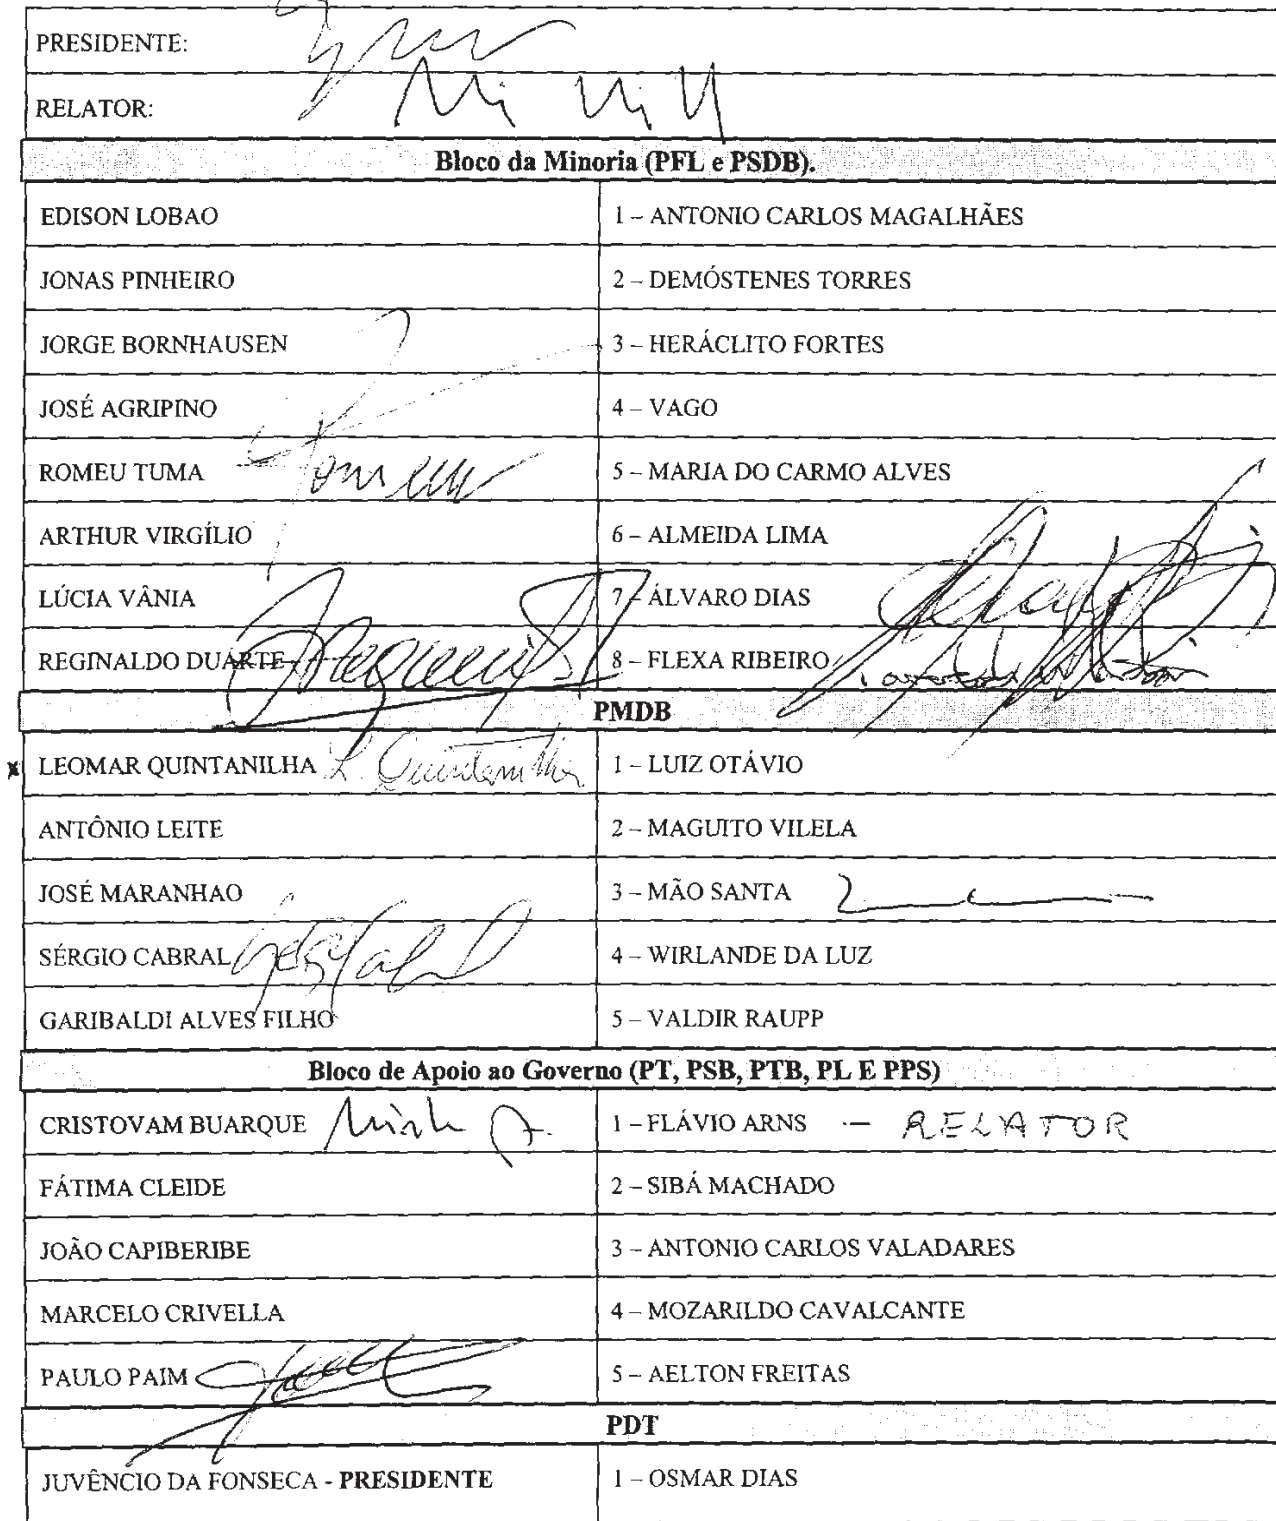 PRESIDENTE:
RELATOR:
Bloco da Minoria (PFL e PSDB).
EDISON LOBAO 1 – ANTONIO CARLOS MAGALHÃES
JONAS PINHEIRO 2 – DEMÓSTENES TORRES
JORGE BORNHAUSEN 3 – HERÁCLITO FORTES
JOSÉ AGRIPINO 4 – VAGO
ROMEU TUMA 5 – MARIA DO CARMO ALVES
ARTHUR VIRGÍLIO 6 – ALMEIDA LIMA
LÚCIA VÂNIA 7 – ÁLVARO DIAS
REGINALDO DUARTE 8 – FLEXA RIBEIRO
PMDB
x LEOMAR QUINTANILHA L. Quintanilha 1 – LUIZ OTÁVIO
ANTÔNIO LEITE 2 – MAGUITO VILELA
JOSÉ MARANHAO 3 – MÃO SANTA
SÉRGIO CABRAL 4 – WIRLANDE DA LUZ
GARIBALDI ALVES FILHO 5 – VALDIR RAUPP
Bloco de Apoio ao Governo (PT, PSB, PTB, PL E PPS)
CRISTOVAM BUARQUE 1 – FLÁVIO ARNS – RELATOR
FÁTIMA CLEIDE 2 – SIBÁ MACHADO
JOÃO CAPIBERIBE 3 – ANTONIO CARLOS VALADARES
MARCELO CRIVELLA 4 – MOZARILDO CAVALCANTE
PAULO PAIM 5 – AELTON FREITAS
PDT
JUVÊNCIO DA FONSECA - PRESIDENTE 1 – OSMAR DIAS